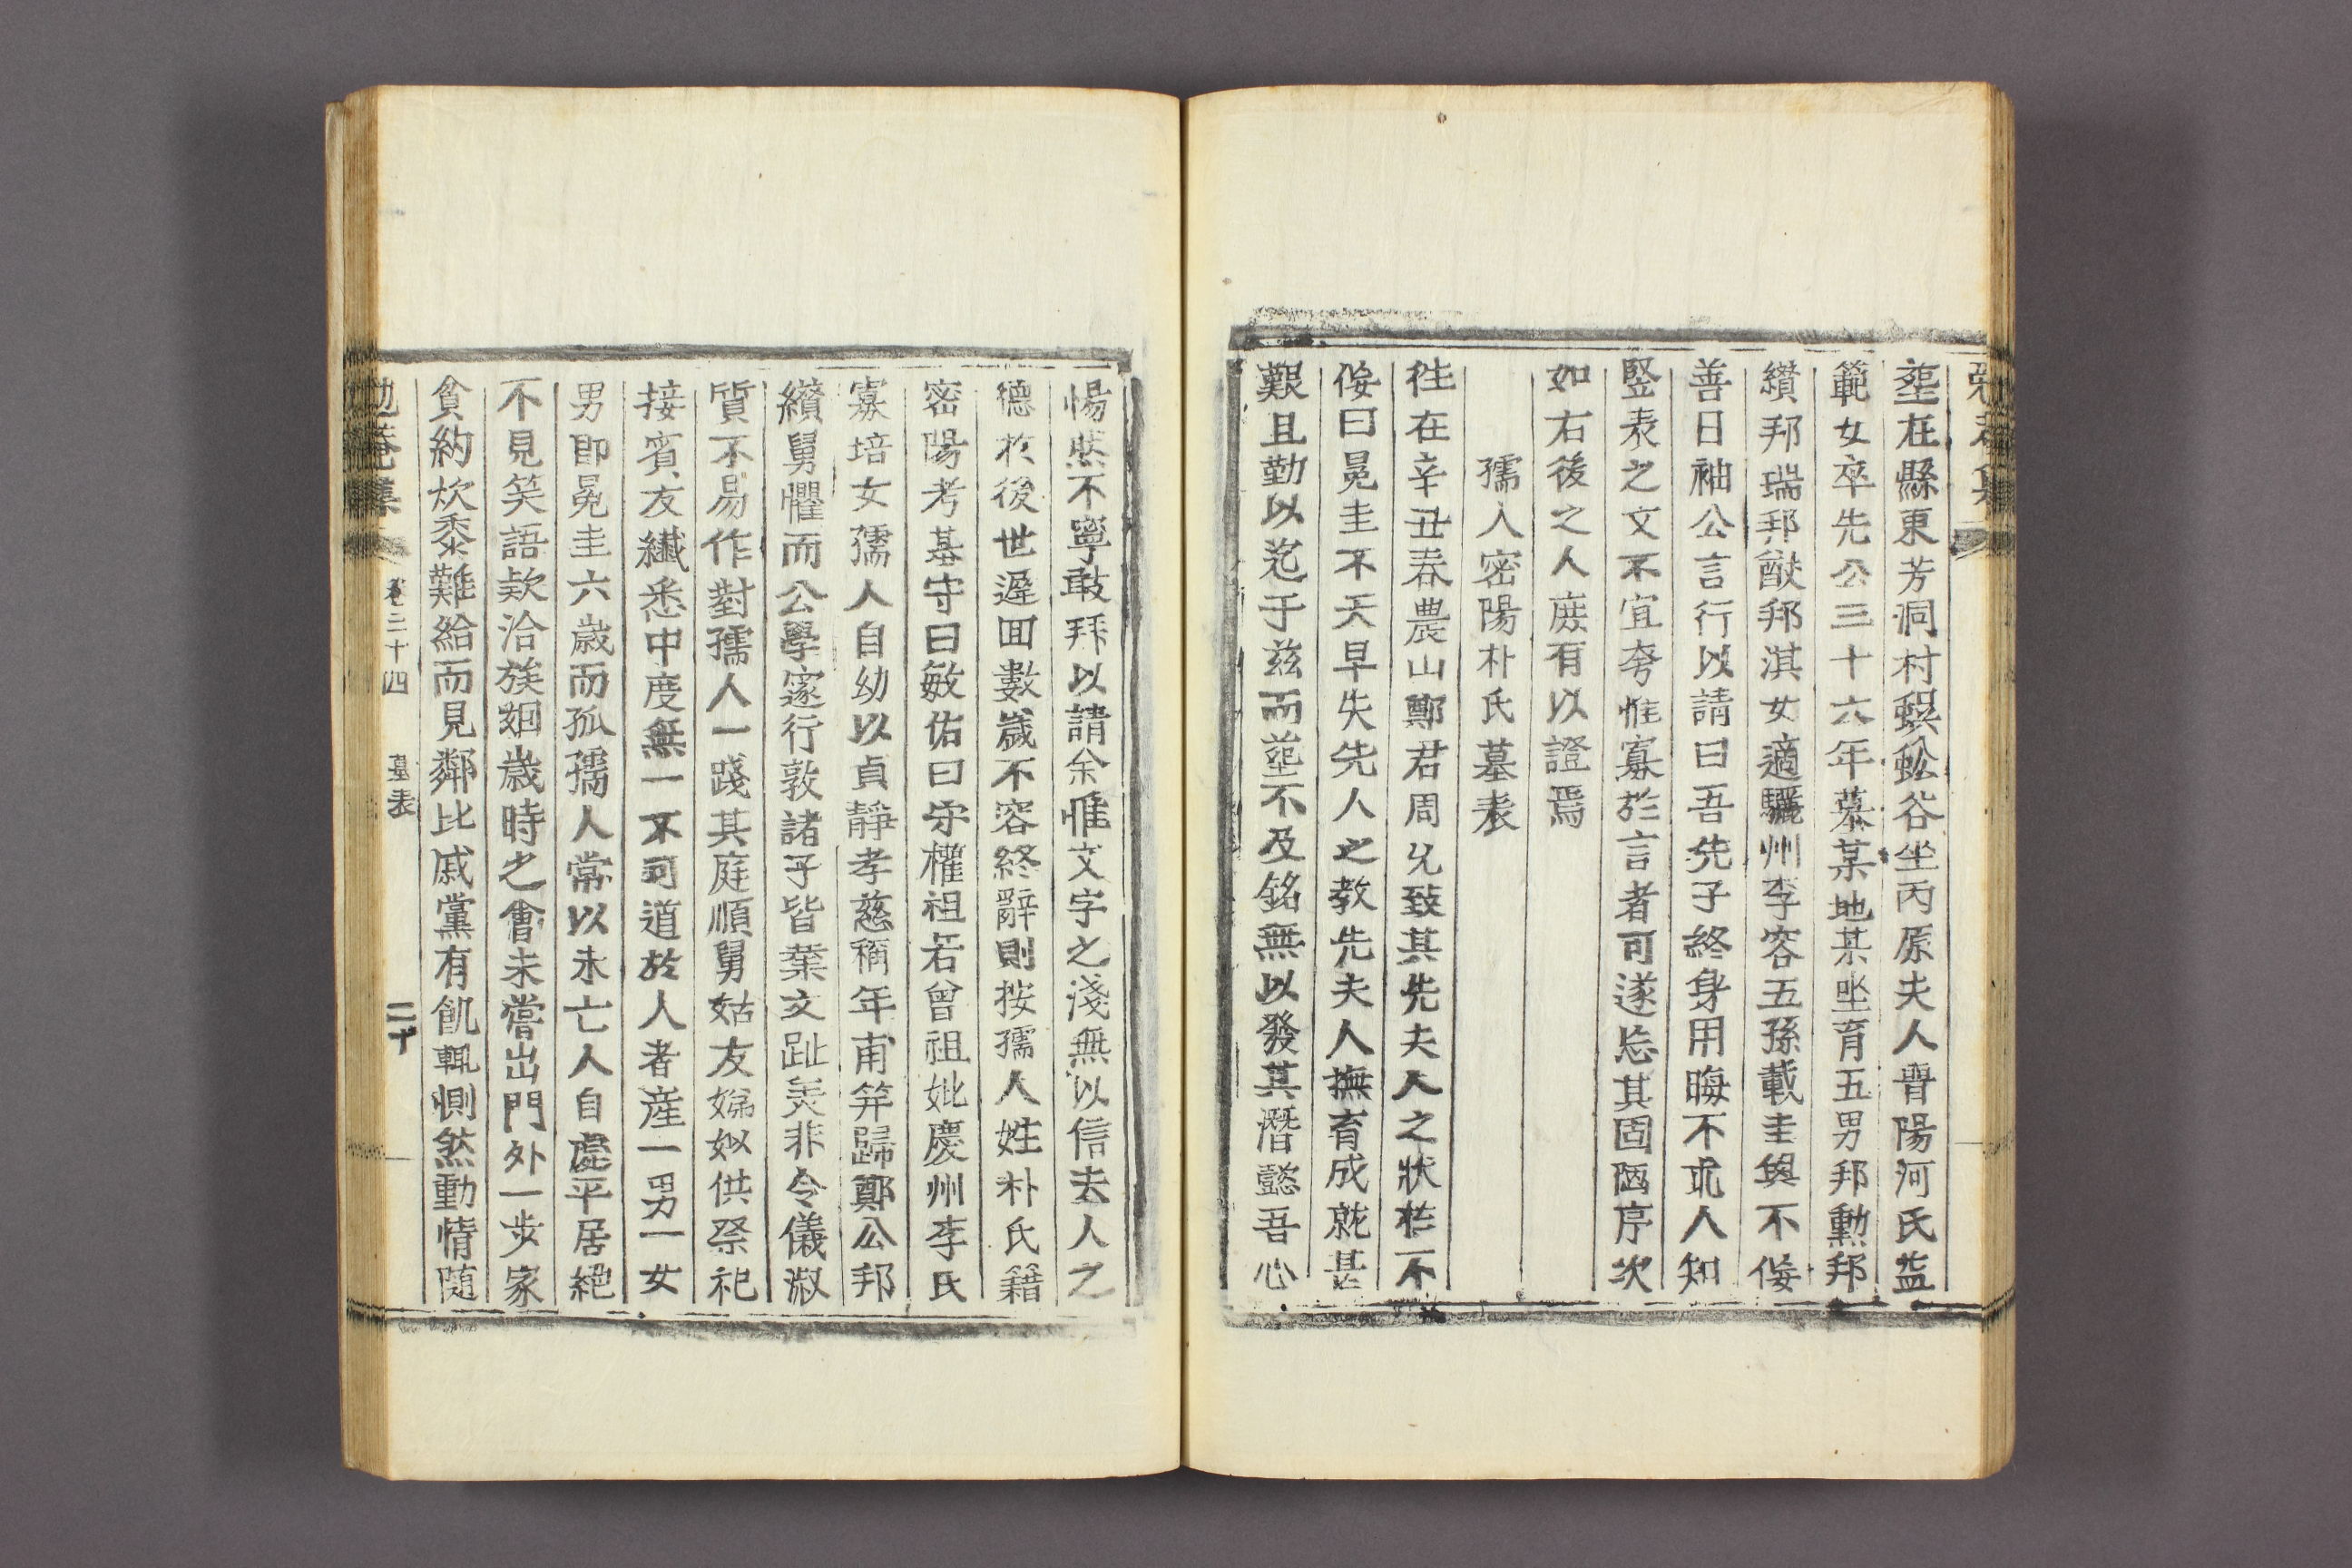 塟在縣東芳洞村蜈蚣谷坐丙原夫人晋陽河氏益
範女卒先公三十六年墓某地某坐育五男邦勳邦
纘邦瑞邦猷邦淇女適驪州李容五孫載圭與不佞
善日袖公言行以請曰吾先子終身用晦不求人知
竪表之文不宜夸惟寡於言者可遂忘其固陋序次
如右後之人庶有以證焉
孺人密陽朴氏墓表
徃在辛丑春農山鄭君周允致其先夫人之狀於不
佞曰冕圭不天早失先人之教先夫人撫育成就甚
艱且勤以迄于玆而塟不及銘無以發其潛懿吾心
惕然不寧敢拜以請余惟文字之淺無以信夫人之
德於後世遲回數歲不容終辭則按孺人姓朴氏籍
密陽考基守曰敏佑曰宗權祖若曾祖妣慶州李氏
寡培女孺人自幼以貞靜孝慈稱年甫笄歸鄭公邦
纘舅懼而公學邃行敦諸子皆業文趾美非令儀淑
質不易作對孺人一踐其庭順舅姑友娣姒供祭祀
接賓友纖悉中度無一不可道於人者産一男一女
男卽冕圭六歲而孤孺人常以未亡人自處平居絕
不見笑語款洽族姻歲時之會未嘗出門外一步家
貧約炊黍難給而見鄰比戚黨有飢輒惻然動情隨
勉菴集 卷三十四 墓表 二十